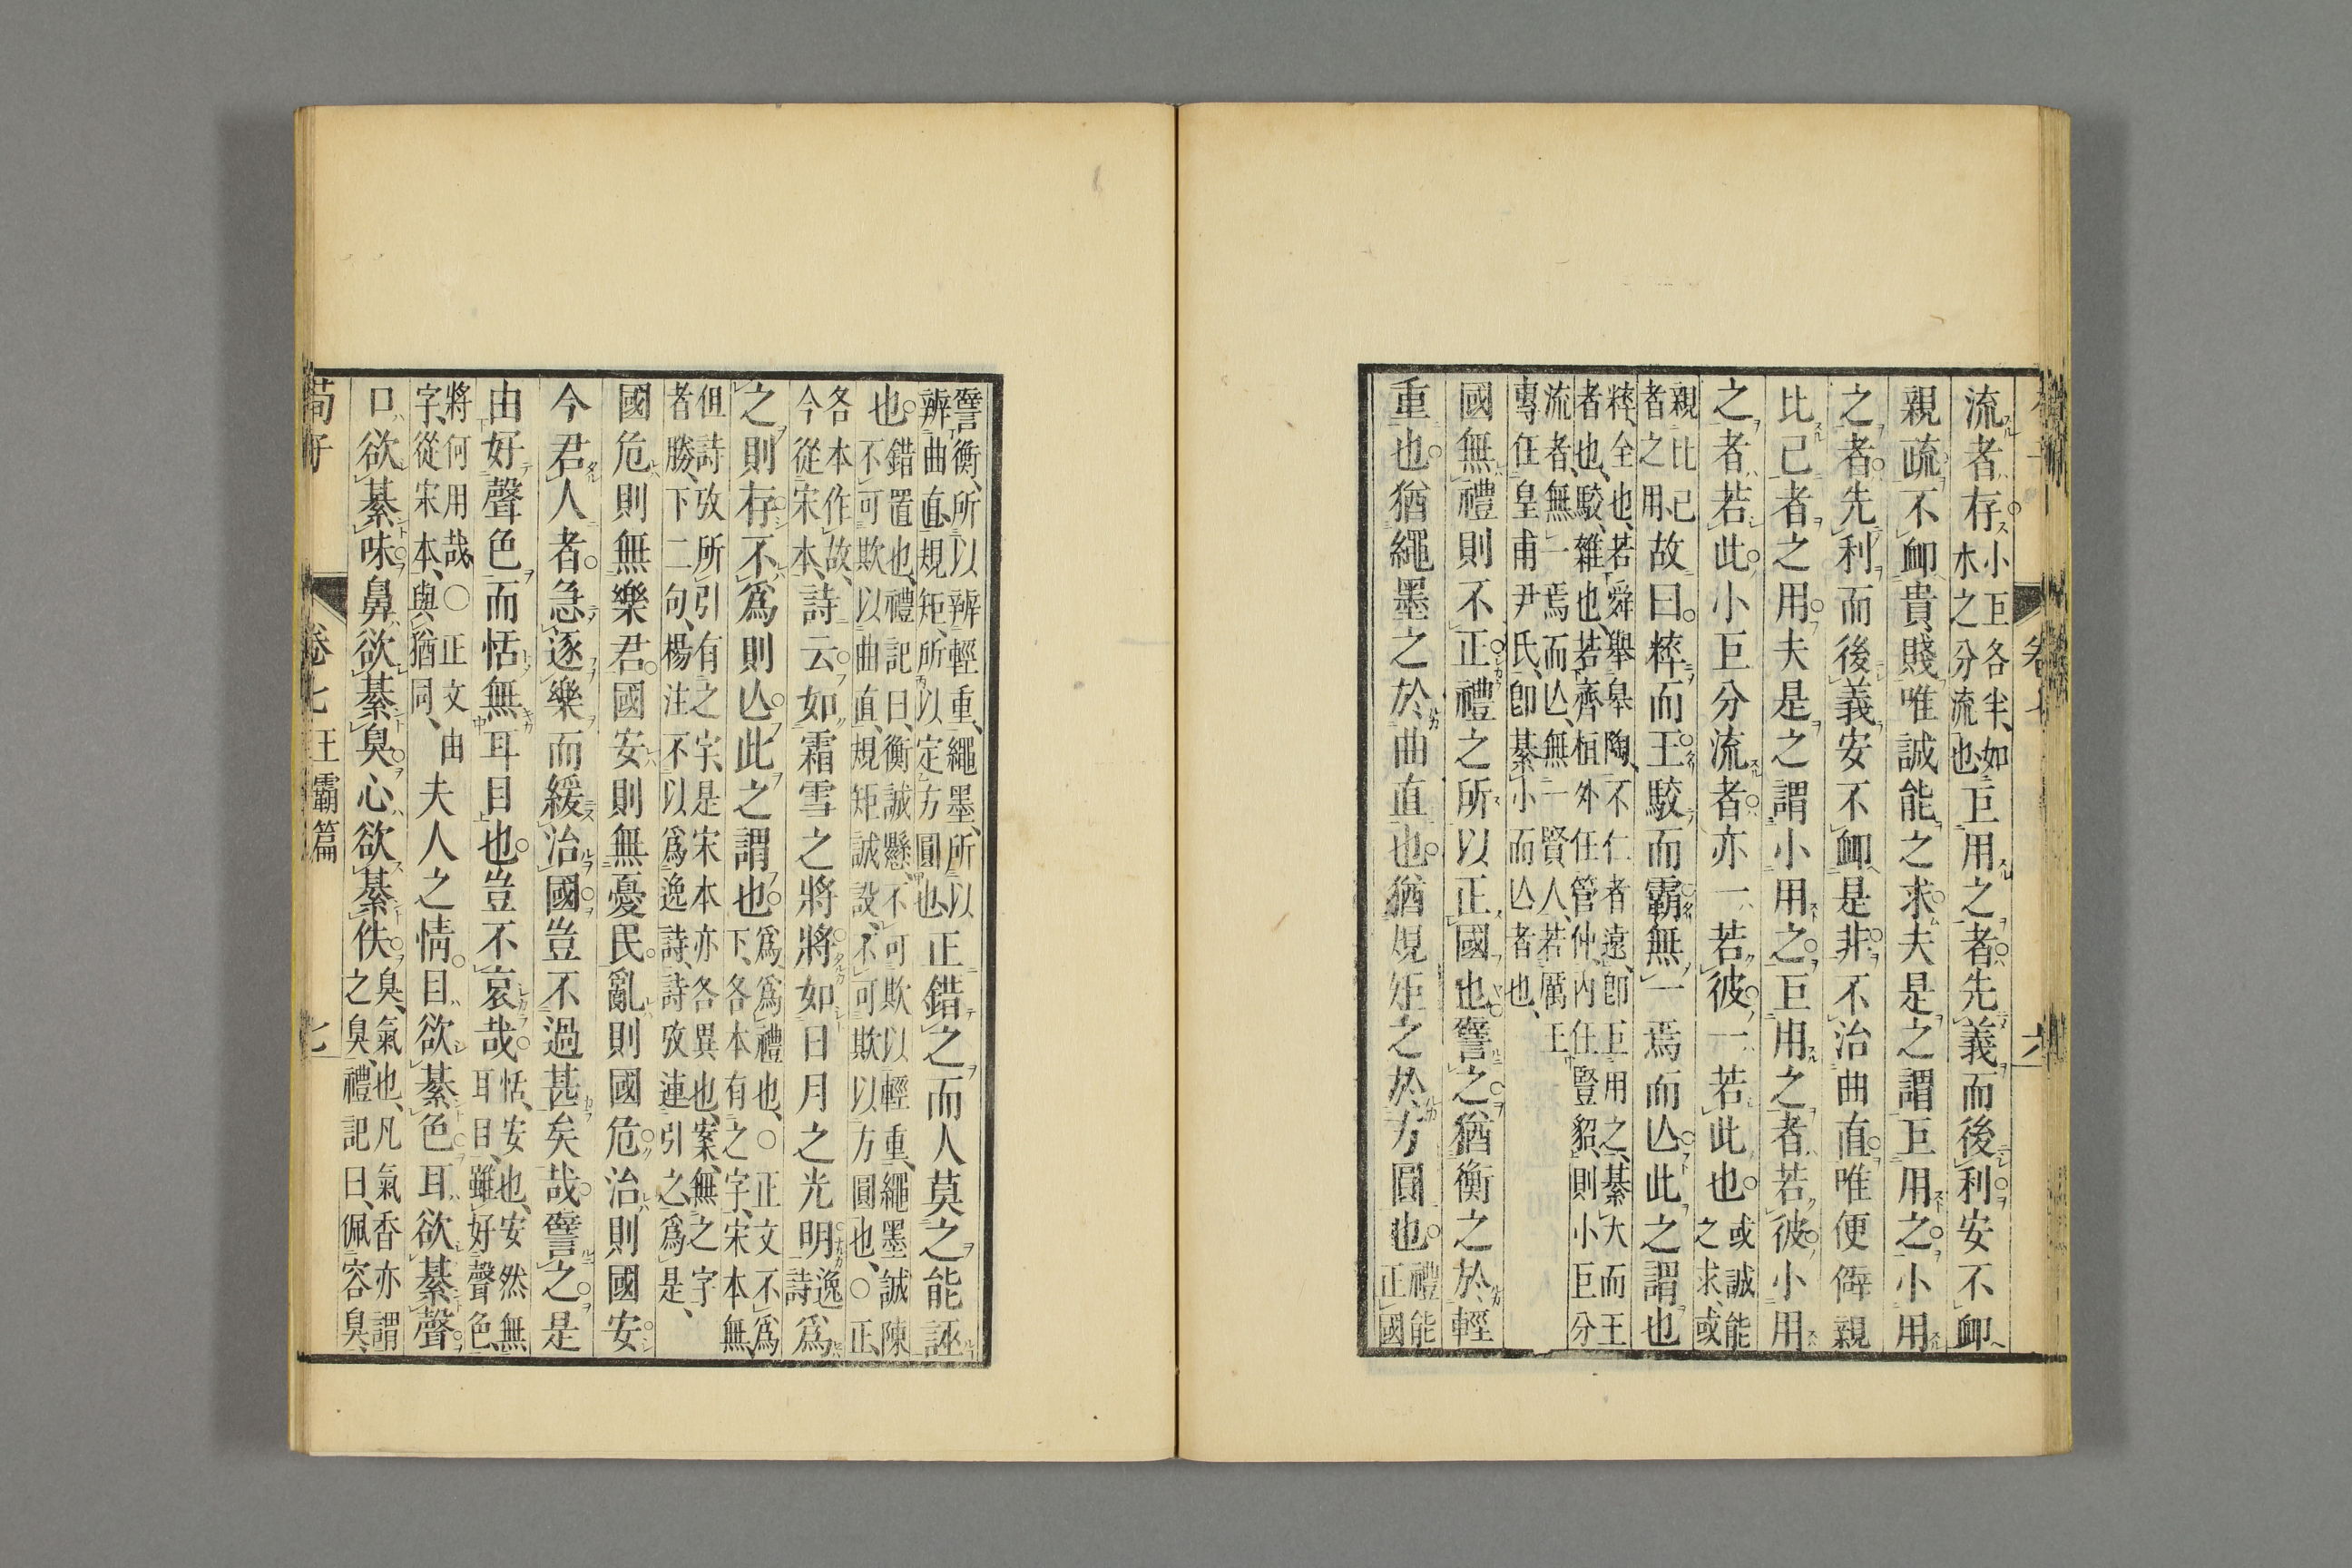 流者存小巨各半、如水之分流也、巨用之者先義而後利安不卹
親疏不卹貴賤唯誠能之求夫是之謂巨用之小用
之者先利而後義安不卹是非不治曲直唯便僻親
比己者之用夫是之謂小用之巨用之者若彼小用
之者若此小巨分流者亦一若彼一若此也或誠能之求、或
親比己者之用、故曰粹而王駁而霸無一焉而亾此之謂也
粹、全也、若舜舉皋陶、不仁者遠、卽巨用之、綦大而王
者也、駁、雜也、若齊桓外任管仲、內任豎貂、則小巨分
流者、無一焉而亾、無一賢人、若厲王
專任皇甫尹氏、卽綦小而亾者也、
國無禮則不正禮之所以正國也譬之猶衡之於輕
重也猶繩墨之於曲直也猶規矩之於方圓也禮能正國
譬衡、所以辨輕重、繩墨、所以辨曲直、規矩、所以定方圓也、正錯之而人莫之能誣
也錯置也、禮記曰、衡誠懸、不可欺以輕重、繩墨誠陳不可欺以曲直、規矩誠設、不可欺以方圓也、○正、
各本作故、今從宋本、詩云如霜雪之將將如日月之光明逸詩爲
之則存不爲則亾此之謂也爲、爲禮也、○正文不爲下、各本有之字、宋本無、
但詩攷所引有之字、是宋本亦各異也、案、無之字
者勝、下二句、楊注不以爲逸詩、詩攷連引之、爲是、
國危則無樂君國安則無憂民亂則國危治則國安
今君人者急逐樂而緩治國豈不過甚矣哉譬之是
由好聲色而恬無耳目也豈不哀哉恬、安也、安然無耳目、雖好聲色、
將何用哉○正文由字、從宋本、與猶同、夫人之情目欲綦色耳欲綦聲
口欲綦味鼻欲綦臭心欲綦佚臭、氣也、凡氣香亦謂之臭、禮記曰、佩容臭、
荀子 卷七 王霸篇 七